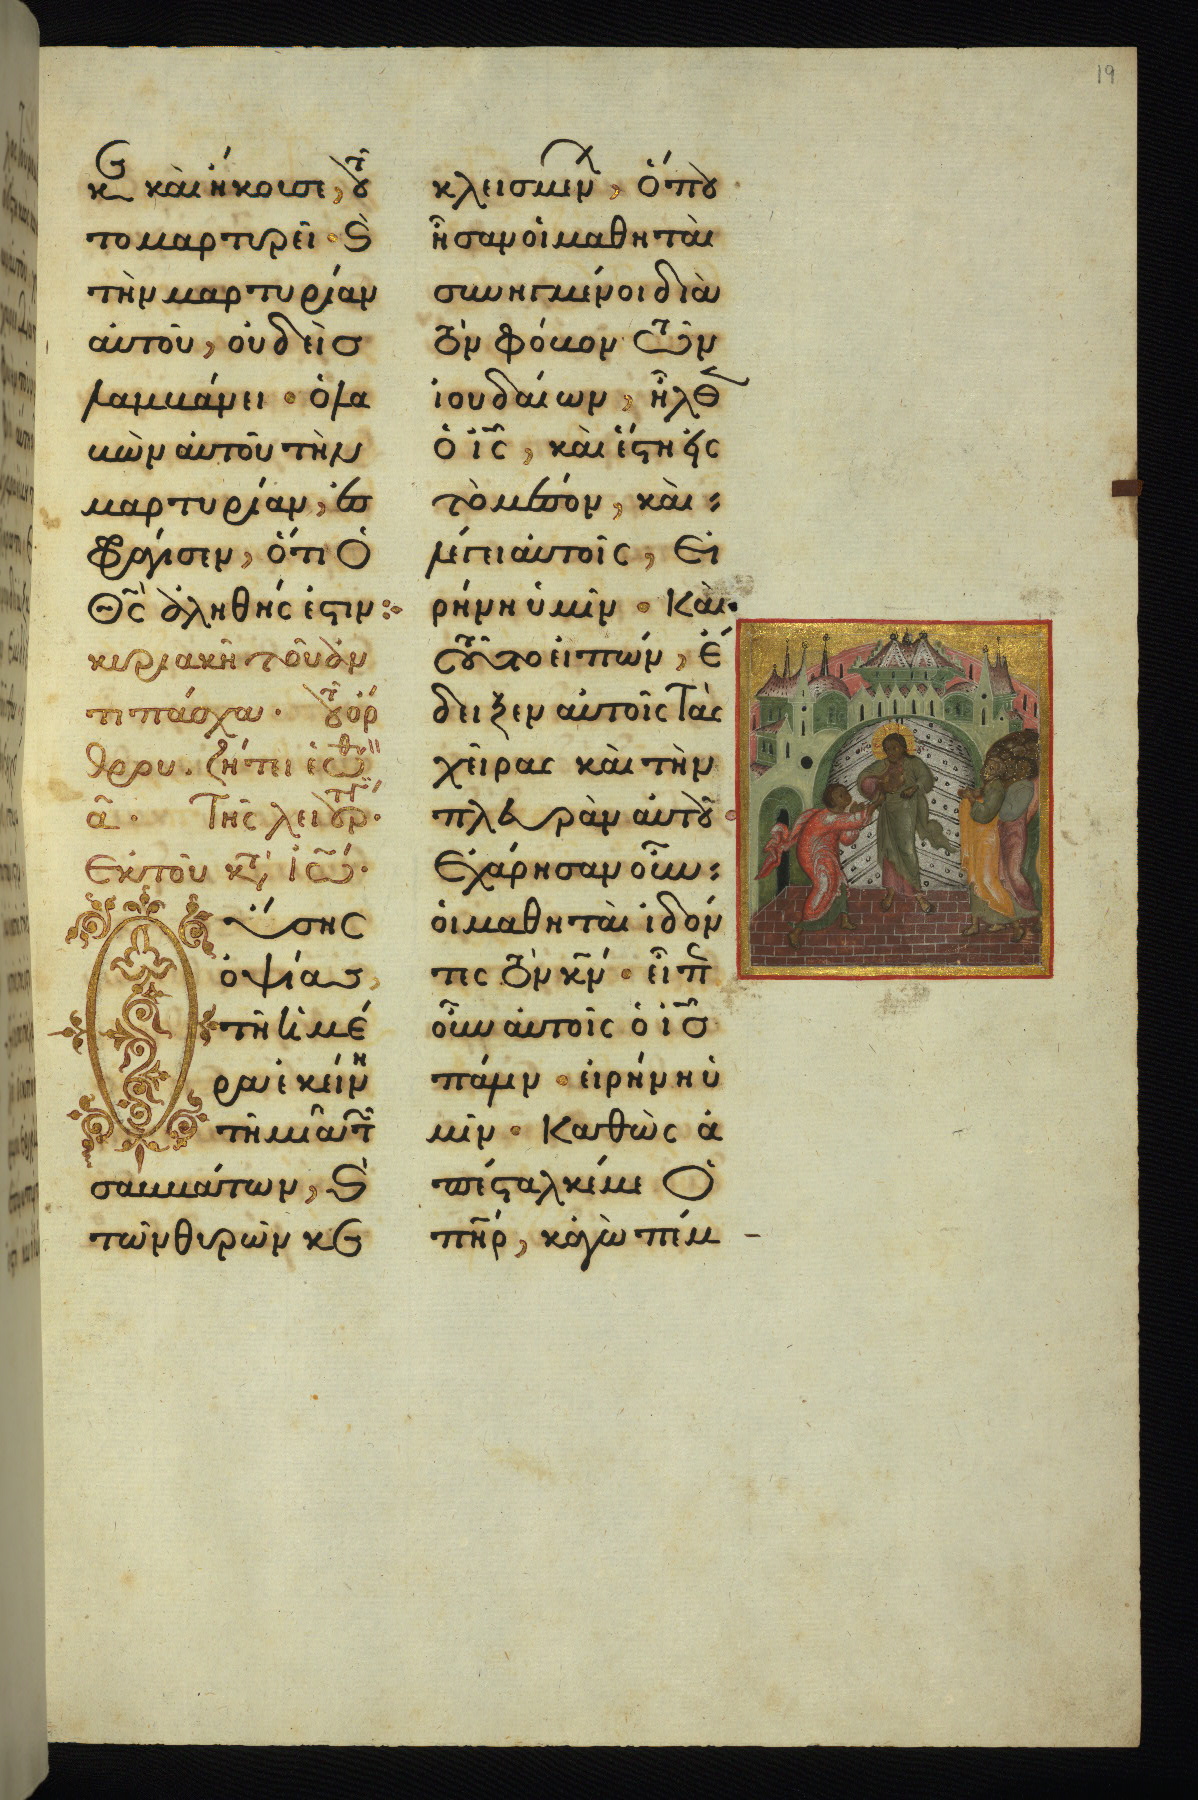 19
κε καὶ ἤκουσε, τοῦ
το μαρτυρεῖ · καὶ
τὴν μαρτυρίαν
αὐτοῦ, οὐδεὶς
λαμβάνει · ὁ λα
βὼν αὐτοῦ τὴν
μαρτυρίαν, ἐσ
φράγισεν, ὅτι ὁ
θς̃ ἀληθής ἐστιν :·
κυριακῇ τοῦ ἀν
τιπάσχα · τοῦ ὄρ
θρου · ζήτει
α · Τῆς λειτουρ ·
Ἐκ τοῦ κτ, ἰω ·
Οὔσης
ὀψίας,
τῇ ἡμέ
ρα ἐκείνη
τῇ μιᾷ τῶν
σαββάτων, καὶ
τῶν θυρῶν κε
κλεισμένων, ὅπου
ἦσαν οἱ μαθηταὶ
συνηγμένοι διὰ
τὸν φόβον τῶν
ἰουδαίων, ἦλθεν
ὁ ις̃, καὶ ἔστη εἰς
τὸ μέσον, καὶ
λέγει αὐτοῖς, Εἰ
ρήνη ὑμῖν · Καὶ
τοῦτο εἰπών, ἔ
δειξεν αὐτοῖς τὰς
χεῖρας καὶ τὴν
πλευρὰν αὐτοῦ ·
Ἐχάρησαν οὖν
οἱ μαθηταὶ ἰδόν
τες τὸν κν̃ · εἶπεν
οὖν αὐτοῖς ὁ ις̃
πάλιν · εἰρήνη ὑ
μῖν · Καθὼς ἀ
πέσταλκέ με ὁ
πη̃ρ, κἀγὼ πέμ